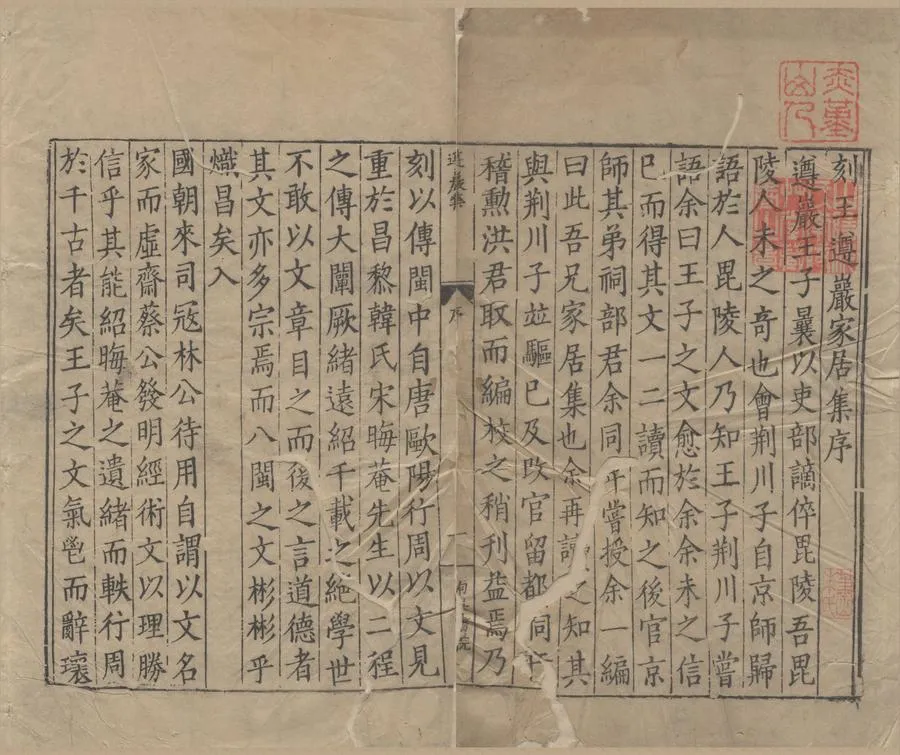 刻王遵巖家居集序
遵巖王子曩以吏部謫倅毘陵吾毘
陵人未之奇也會荆川子自京師歸
語於人毘陵人乃知王子荆川子嘗
語余曰王子之文愈於余余未之信
巳而得其文一二讀而知之後官京
師其弟祠部君余同年嘗授余一編
曰此吾兄家居集也余再讀之知其
與荆川子並驅巳及改官留都同年
稽勲洪君取而編校之稍刋益焉乃
遵巖集
序
一
刻以傳閩中自唐歐陽行周以文見
重於昌黎韓氏宋晦菴先生以二程
之傳大闡厥緒遠紹千載之絶學世
不敢以文章目之而後之言道德者
其文亦多宗焉而八閩之文彬彬乎
熾昌矣入
國朝來司冦林公待用自謂以文名
家而虛齋蔡公發明經術文以理勝
信乎其能紹晦菴之遺緒而軼行周
於千古者矣王子之文氣鬯而辭瓌